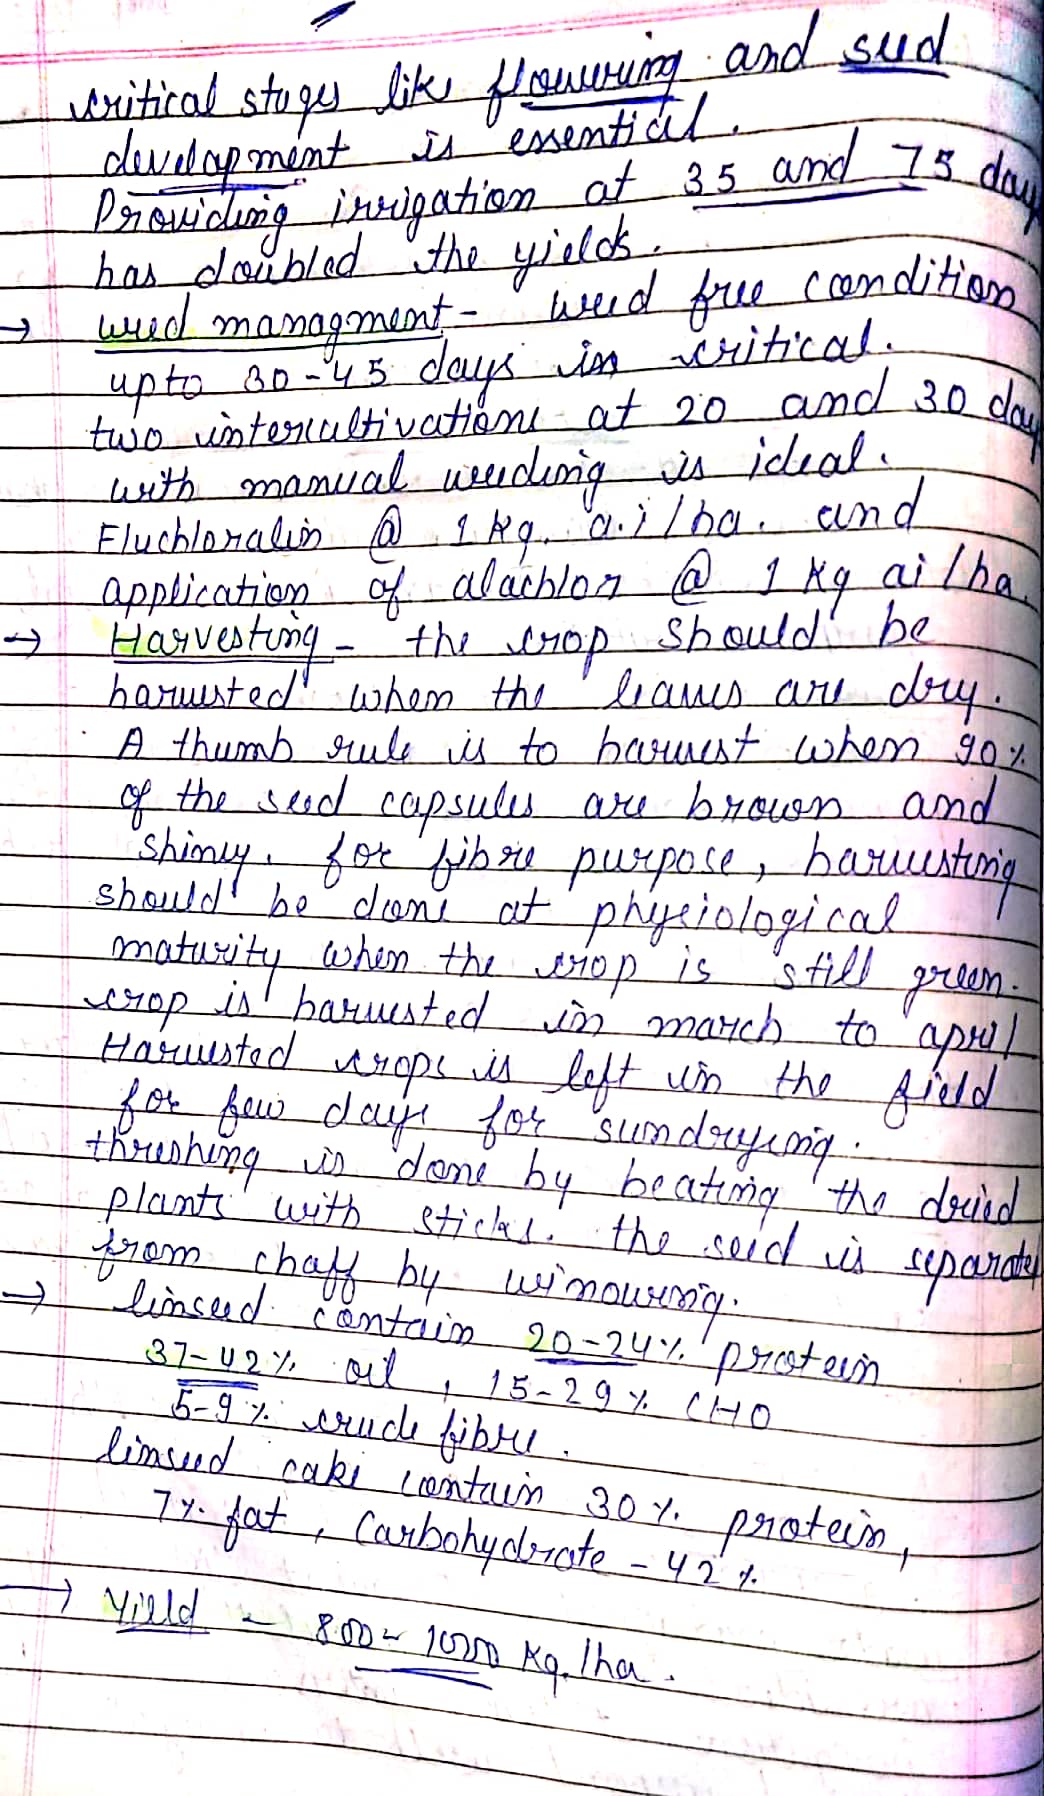 critical stages like flowering and seed
development is essential.
Providing irrigation at 35 and 75 day
has doubled the yields.
→ weed managment - weed free condition
upto 30-45 days is critical.
two intercultivations at 20 and 30 day
with manual weeding is ideal.
Fluchloralin @ 1 kg. a.i/ha. and
application of alachlor @ 1 kg ai/ha.
→ Harvesting - the crop should be
harvested when the leaves are dry.
A thumb rule is to harvest when 90%
of the seed capsules are brown and
shiny. for fibre purpose, harvesting
should be done at physiological
maturity when the crop is still green.
crop is harvested in march to april
Harvested crops is left in the field
for few days for sundrying.
threshing is done by beating the dried
plants with sticks. the seed is separate
from chaff by winowing.
→ linseed contain 20-24% protein
37-42% oil, 15-29% CHO
5-9% crude fibre.
linseed cake contain 30% protein,
7% fat, Carbohydrate - 42%
→ Yield - 800-1000 kg./ha.